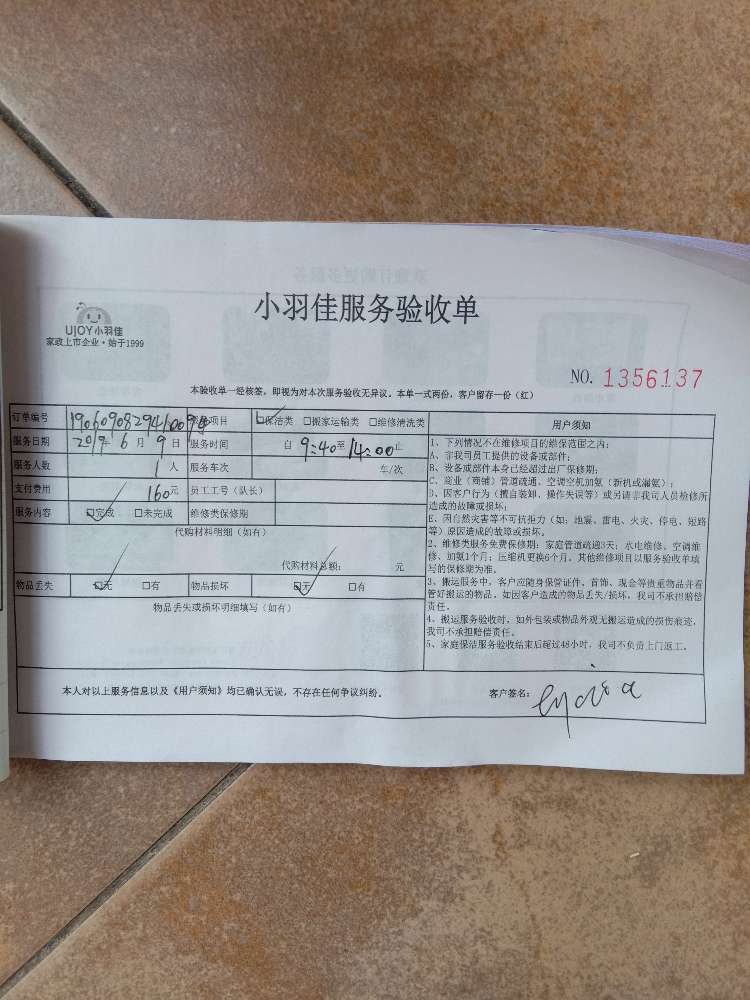 UJOY小羽佳
家政上市企业·始于1999
小羽佳服务验收单
NO. 1356137
本验收单一经核签，即视为对本次服务验收无异议。本单一式两份，客户留存一份（红）
订单编号 服务项目 ☑保洁类 □搬家运输类 □维修清洗类
服务日期 2019年 6 月 9 日 服务时间 自 9:40至14:00止
服务人数 1 人 服务车次 车/次
支付费用 160元 员工工号（队长）
服务内容 ☑完成 □未完成 维修类保修期
代购材料明细（如有）
代购材料总额： 元
物品丢失 ☑无 □有 物品损坏 ☑无 □有
物品丢失或损坏明细填写（如有）
用户须知
1、下列情况不在维修项目的维保范围之内：
A、非我司员工提供的设备或部件；
B、设备或部件本身已经超过出厂保修期；
C、商业（商铺）管道疏通、空调空机加氨（新机或漏氨）；
D、因客户行为（擅自装卸、操作失误等）或另请非我司人员检修所
造成的故障或损坏；
E、因自然灾害等不可抗拒力（如：地震、雷电、火灾、停电、短路
等）原因造成的故障或损坏。
2、维修类服务免费保修期：家庭管道疏通3天；水电维修、空调维
修、加氨1个月；压缩机更换6个月。其他维修项目以服务验收单填
写的保修期为准。
3、搬运服务中，客户应随身保管证件、首饰、现金等贵重物品并看
管好搬运的物品。如因客户造成的物品丢失/损坏，我司不承担赔偿
责任。
4、搬运服务验收时，如外包装或物品外观无搬运造成的损伤痕迹，
我司不承担赔偿责任。
5、家庭保洁服务验收结束后超过48小时，我司不负责上门返工。
本人对以上服务信息以及《用户须知》均已确认无误，不存在任何争议纠纷。 客户签名：